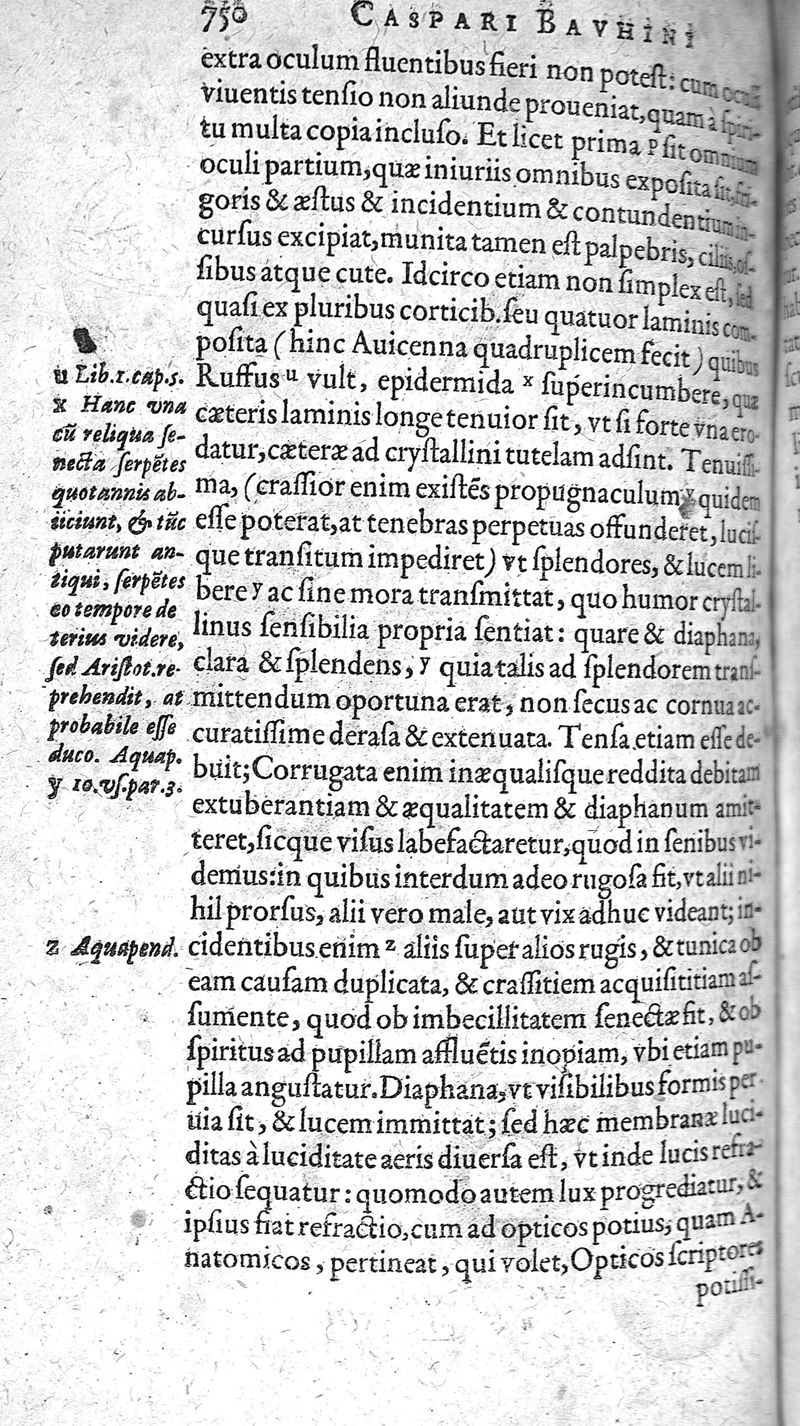 750 CASPARI BAVHINI
extra oculum fluentibus fieri non poteſt: cum oculi
viuentis tenſio non aliunde proueniat, quam à ſpiri-
tu multa copia incluſo. Et licet prima ſit omnium
oculi partium, quæ iniuriis omnibus expoſita ſit, fri-
goris & æſtus & incidentium & contundentium in-
curſus excipiat, munita tamen eſt palpebris, ciliis, oſ-
ſibus atque cute. Idcirco etiam non ſimplex eſt, ſed
quaſi ex pluribus corticib. ſeu quatuor laminis com-
poſita (hinc Auicenna quadruplicem fecit) quibus
Ruffus u vult, epidermida x ſuperincumbere, quæ
cæteris laminis longe tenuior ſit, vt ſi forte vna ero-
datur, cæteræ ad cryſtallini tutelam adſint. Tenuiſſi-
ma, (craſſior enim exiſtẽs propugnaculum quidem
eſſe poterat, at tenebras perpetuas offunderet, luciſ-
que tranſitum impediret) vt ſplendores, & lucem li-
bere y ac ſine mora tranſmittat, quo humor cryſtal-
linus ſenſibilia propria ſentiat: quare & diaphana,
clara & ſplendens, y quia talis ad ſplendorem tranſ-
mittendum oportuna erat, non ſecus ac cornua ac-
curatiſſime deraſa & extenuata. Tenſa etiam eſſe de-
buit; Corrugata enim inæqualiſque reddita debitam
extuberantiam & æqualitatem & diaphanum amit-
teret, ſicque viſus labefactaretur, quod in ſenibus vi-
demus: in quibus interdum adeo rugoſa fit, vt alii ni-
hil prorſus, alii vero male, aut vix adhuc videant; in-
cidentibus enim z aliis ſuper alios rugis, & tunica ob
eam cauſam duplicata, & craſſitiem acquiſititiam aſ-
ſumente, quod ob imbecillitatem ſenectæ fit, & ob
ſpiritus ad pupillam affluẽtis inopiam, vbi etiam pu-
pilla anguſtatur. Diaphana, vt viſibilibus formis per
uia ſit, & lucem immittat; ſed hæc membranæ luci-
ditas à luciditate aeris diuerſa eſt, vt inde lucis refra-
ctio ſequatur: quomodo autem lux progrediatur, &
ipſius fiat refractio, cum ad opticos potius, quam A-
natomicos, pertineat, qui volet, Opticos ſcriptores
potiſſi-
u Lib.1.cap.s.
x Hanc vna
cũ reliqua ſe-
necta ſerpẽtes
quotannis ab-
iiciunt, & tũc
putarunt an-
tiqui, ſerpẽtes
eo tempore de
terius videre,
ſed Ariſtot. re-
prehendit, at
probabile eſſe
duco. Aquap.
y 10.vſ.par.3.
z Aquapend.